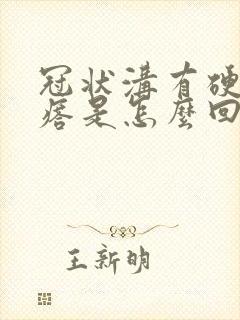 冠状溝有硬
痞是怎麼回
王新明